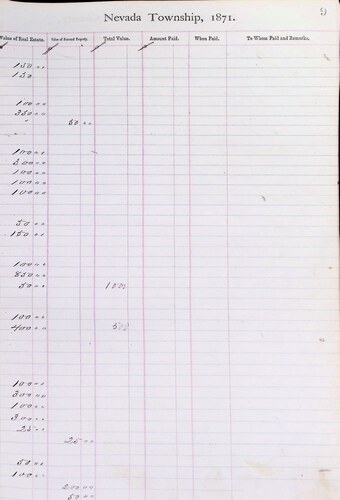 9
Nevada Township, 1871.
Value of Real Estate. Value of Personal Property. Total Value. Amount Paid. When Paid. To Whom Paid and Remarks.
150 00
150
100 00
350 00
50 00
100 00
300 00
100 00
100 00
100 00
50 00
150 00
100 00
850 00
50 00 1000
100 00
400 00 500
100 00
300 00
100 00
300 00
25 00
25 00
50 00
100 00
200 00
50 00